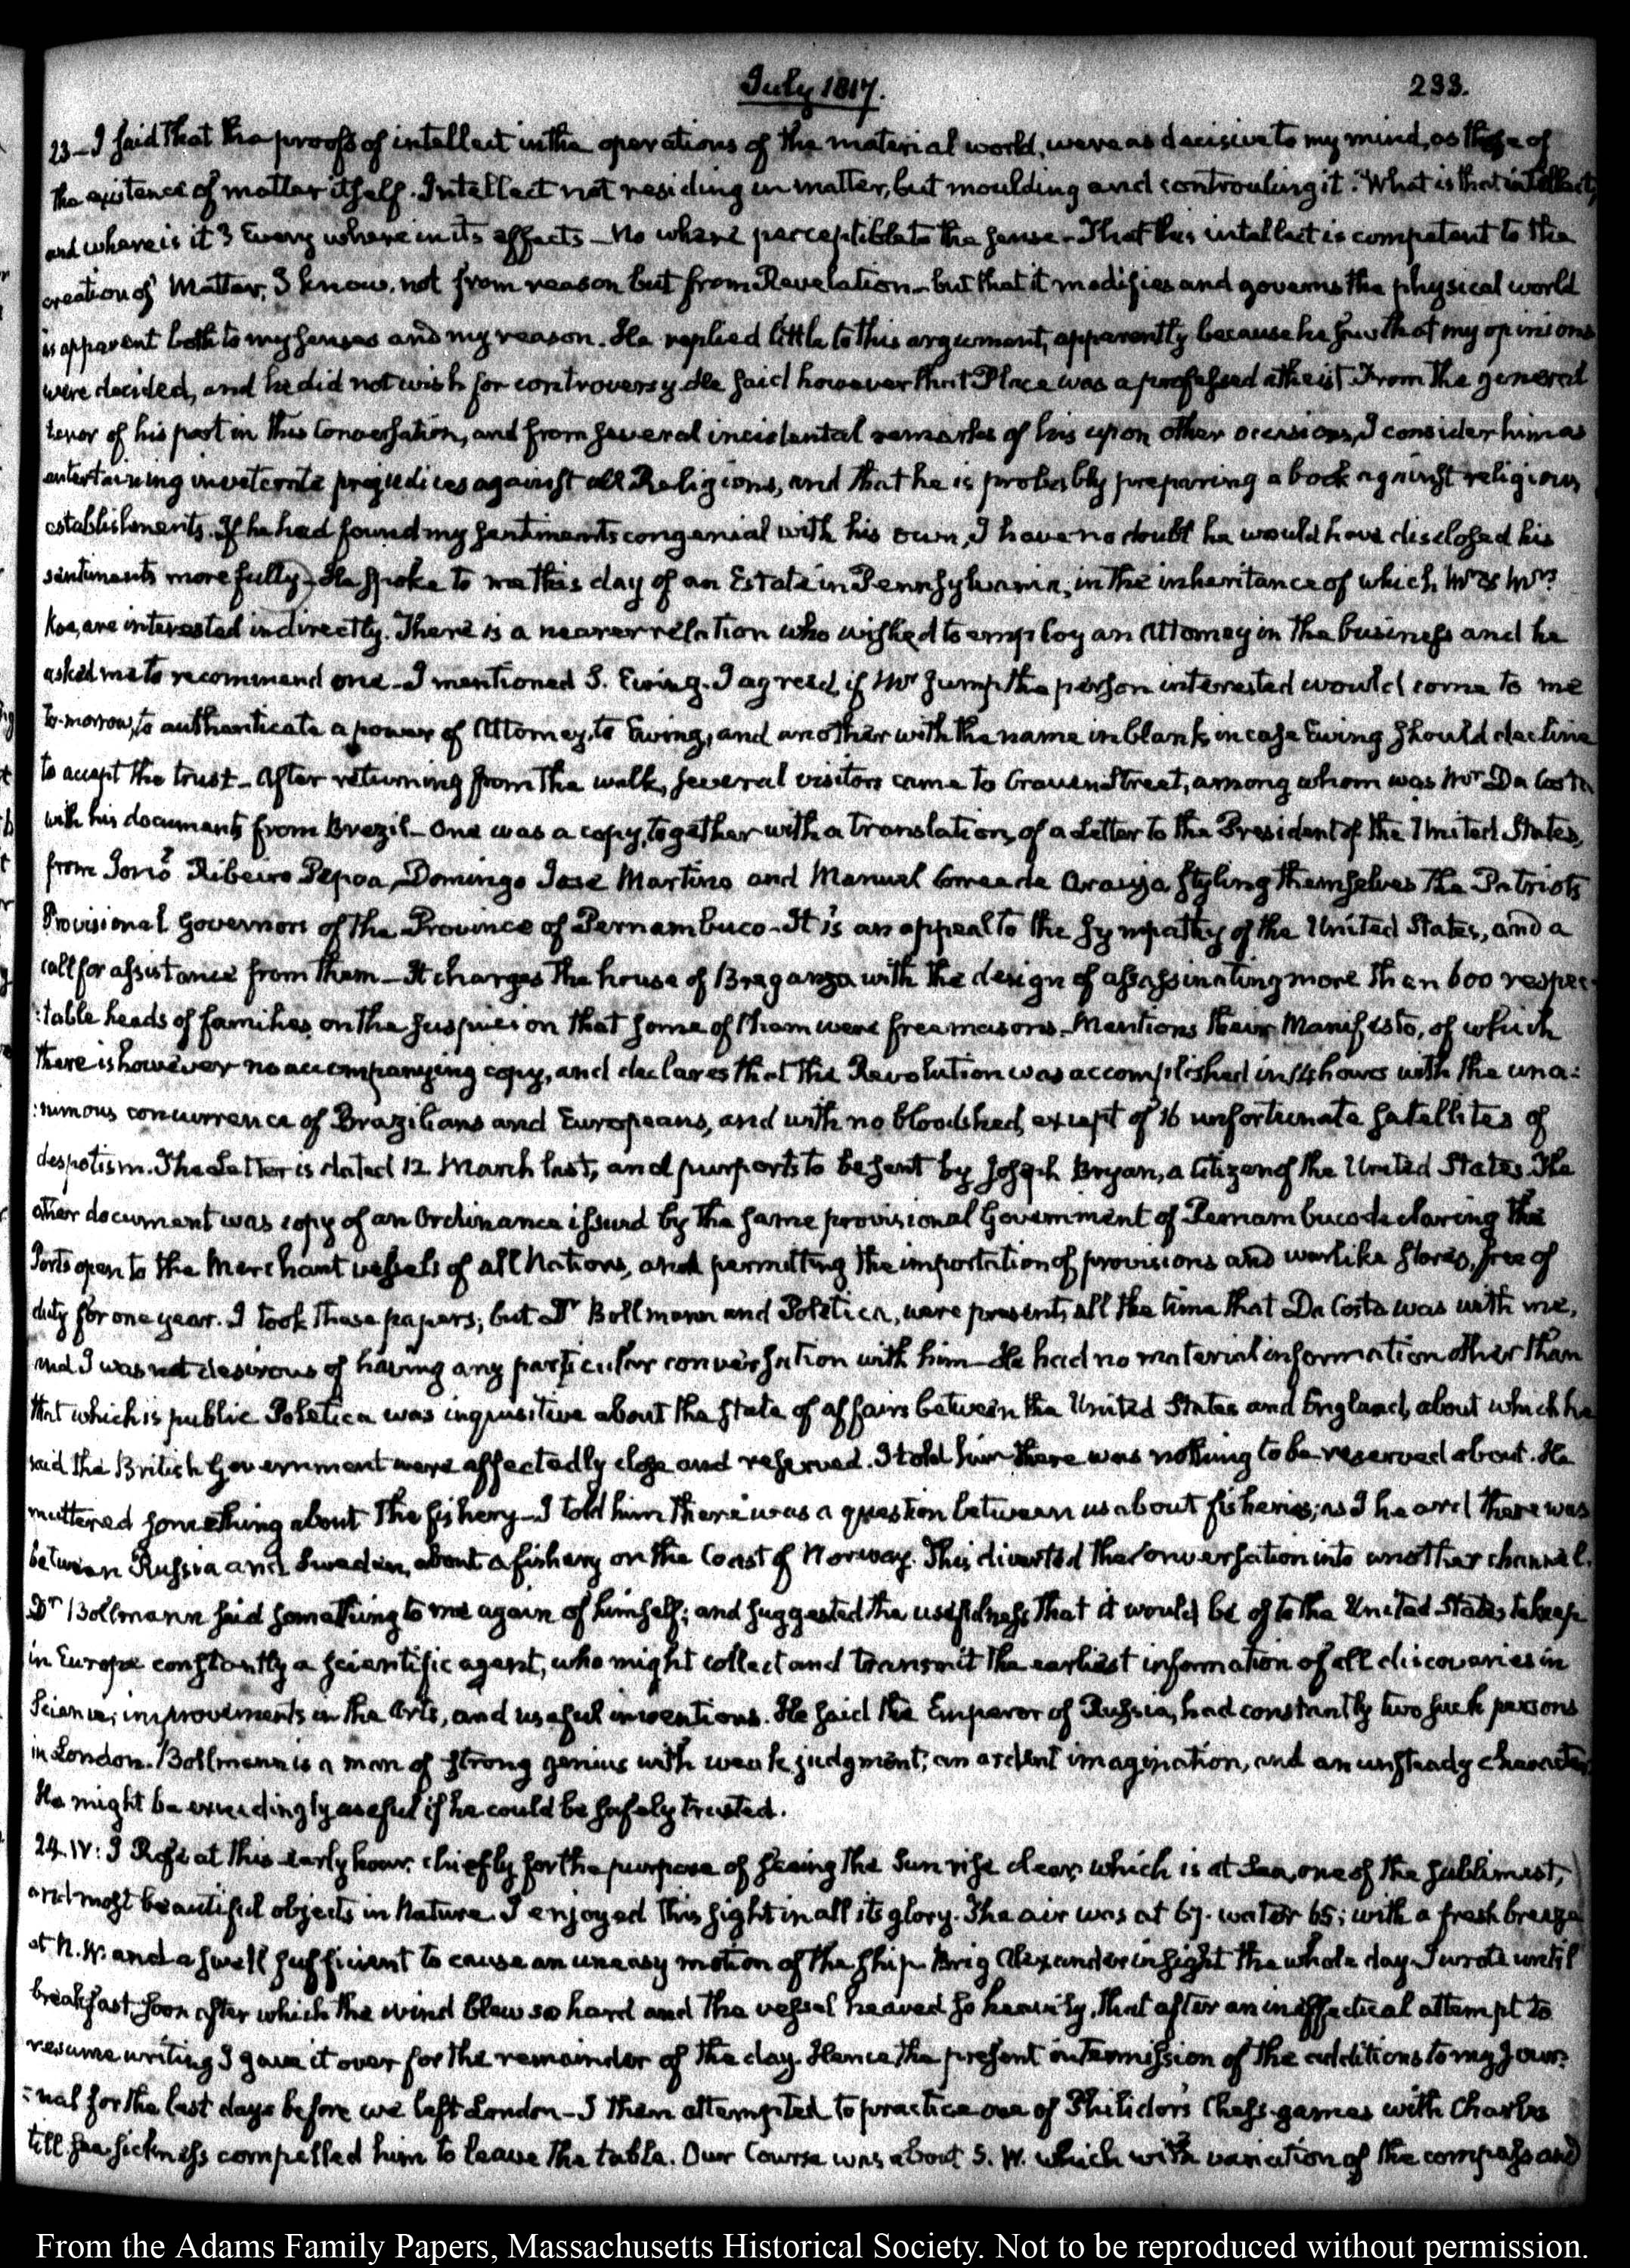 July 1817.
233.
23_ I said that the proofs of intellect in the operations of the material world, were as decisive to my mind, as those of
the existence of matter itself. Intellect not residing in matter, but moulding and controuling it. What is that intellect,
and where is it? Every where in its effects_ No where perceptible to the sense_ That this intellect is competent to the
creation of Matter, I know, not from reason but from Revelation_ but that it modifies and governs the physical world
is apparent both to my senses and my reason. He replied little to this argument, apparently because he saw that my opinions
were decided, and he did not wish for controversy. He said however that Place was a professed atheist. From the general
tenor of his part in this Conversation, and from several incidental remarks of his upon other occasions, I consider him as
entertaining inveterate prejudices against all Religions, and that he is probably preparing a book against religious
establishments. If he had found my sentiments congenial with his own, I have no doubt he would have disclosed his
sentiments more fully_ He spoke to me this day of an Estate in Pennsylvania, in the inheritance of which, Mr. & Mrs.
Koe, are interested indirectly. There is a nearer relation who wished to employ an Attorney in the business and he
asked me to recommend one_ I mentioned S. Ewing. I agreed, if Mr Jump the person interested would come to me
to-morrow, to authenticate a power of Attorney, to Ewing, and another with the name in blank, in case Ewing should decline
to accept the trust_ After returning from the walk, several visitors came to Craven Street, among whom was Mr Da Costa
with his documents from Brazil_ One was a copy, together with a translation, of a Letter to the President of the United States,
from Joaõ Ribeiro Pepoa, Domingo Jose Martins and Manuel Correa de Araujo, styling themselves the Patriots
Provisional Governors of the Province of Pernambuco_ It is an appeal to the sympathy of the United States, and a
call for assistance from them_ It charges the house of Braganza with the design of assassinating more than 600 respec-
:table heads of families, on the suspicion that some of them were free masons. Mentions their Manifesto, of which
there is however no accompanying copy, and declares that the Revolution was accomplished in 54 hours with the una:
:nimous concurrence of Brazilians and Europeans, and with no bloodshed, except of 16 unfortunate satellites of
despotism. The Letter is dated 12. March last, and purports to be sent by Joseph Bryan, a Citizen of the United States. The
other document was copy of an Ordinance issued by the same provisional Government of Pernambuco declaring the
Ports open to the Merchant vessels of all Nations, and permitting the importation of provisions and warlike stores, free of
duty for one year. I took these papers; but Dr Bollmann and Poletica, were present, all the time that Da Costa was with me,
and I was not desirous of having any particular conversation with him_ He had no material information other than
that which is public. Poletica was inquisitive about the state of affairs between the United States and England, about which he
said the British Government were affectedly close and reserved. I told him there was nothing to be reserved about. He
muttered something about the fishery_ I told him there was a question between us about fisheries; as I heard there was
between Russia and Sweden, about a fishery on the Coast of Norway. This diverted the conversation into another channel.
Dr Bollmann said something to me again of himself; and suggested the usefulness that it would be of to the United States, to keep
in Europe constantly a scientific agent, who might collect and transmit the earliest information of all discoveries in
Science; improvements in the Arts, and useful inventions. He said the Emperor of Russia, had constantly two such persons
in London. Bollmann is a man of strong genius with weak judgment; an ardent imagination, and an unsteady character.
He might be exceedingly useful if he could be safely trusted.
24. IV: I Rose at this early hour, chiefly for the purpose of seeing the Sun rise clear, which is at Sea, one of the sublimest,
and most beautiful objects in Nature. I enjoyed this sight in all its glory. The air was at 67. water 65; with a fresh breeze
at N.W. and a swell sufficient to cause an uneasy motion of the ship. Brig Alexander in sight the whole day. I wrote until
breakfast_ soon after which the wind blew so hard and the vessel heaved so heavily, that after an ineffectual attempt to
resume writing I gave it over for the remainder of the day. Hence, the present intermission of the additions to my Jour:
:nal for the last days before we left London_ I then attempted to practice one of Philidor's Chess-games with Charles
till sea sickness compelled him to leave the table. Our Course was about S.W. which with variation of the compass and
From the Adams Family Papers, Massachusetts Historical Society. Not to be reproduced without permission.